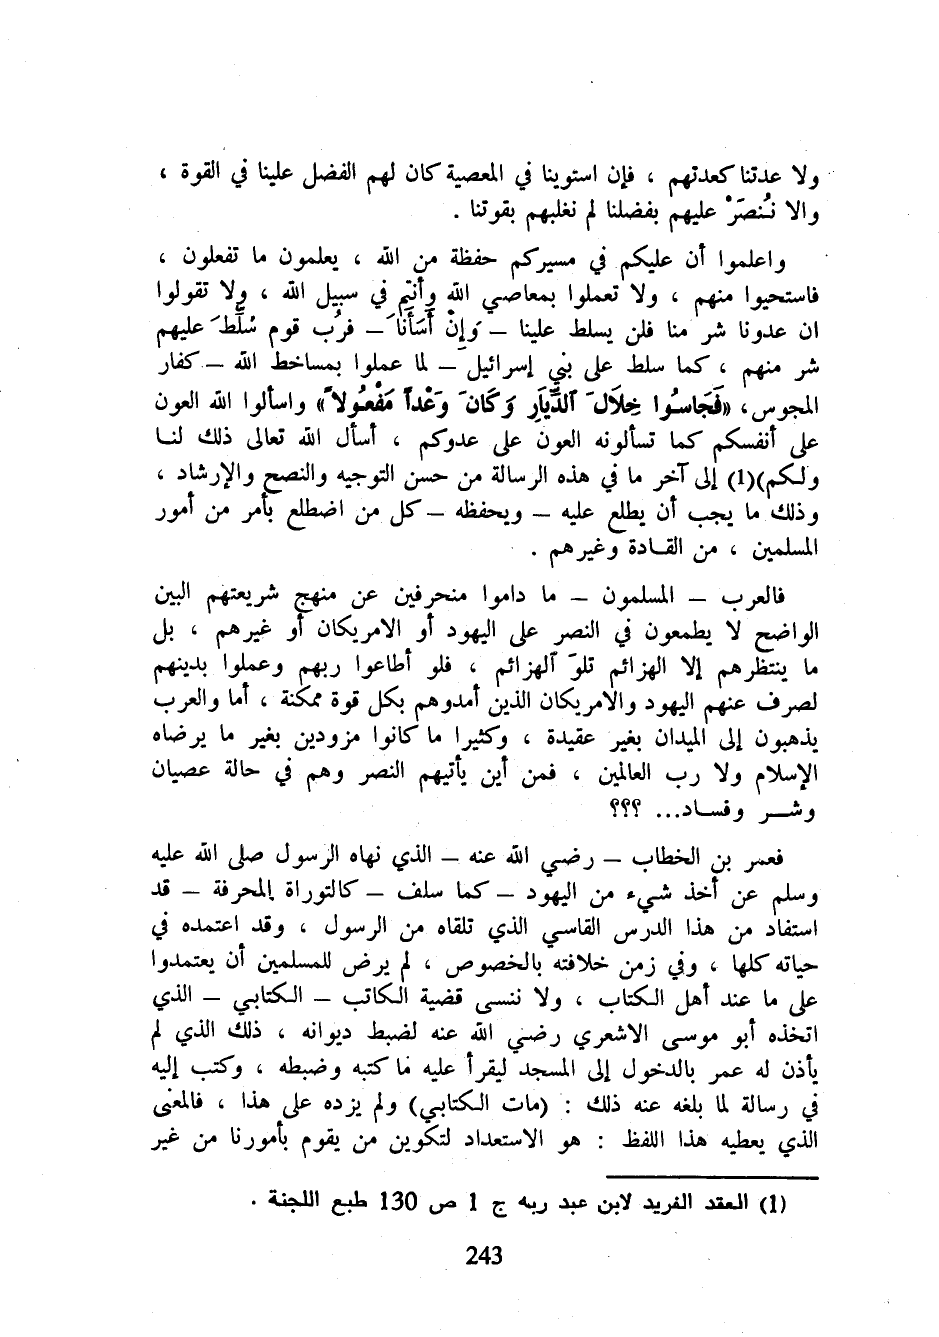 ولا عدتنا كعدتهم ، فإن استوينا في المعصية كان لهم الفضل علينا في القوة ،
والا نُنصَرْ عليهم بفضلنا لم نغلبهم بقوتنا .
واعلموا أن عليكم في مسيركم حفظة من الله ، يعلمون ما تفعلون ،
فاستحيوا منهم ، ولا تعملوا بمعاصي الله وأنتم في سبيل الله ، ولا تقولوا
ان عدونا شر منا فلن يسلط علينا – وَإنْ أَسَأنَا – فرُب قوم سُلِّطَ عليهم
شر منهم ، كما سلط على بني إسرائيل – لما عملوا بمساخط الله – كفار
المجوس، «فَجَاسُوا خِلَالَ ٱلدِّيَارِ وَكَانَ وَعْداً مَفْعُولاً» واسألوا الله العون
على أنفسكم كما تسألونه العون على عدوكم ، أسأل الله تعالى ذلك لنا
ولكم)(1) إلى آخر ما في هذه الرسالة من حسن التوجيه والنصح والإرشاد ،
وذلك ما يجب أن يطلع عليه – ويحفظه – كل من اضطلع بأمر من أمور
المسلمين ، من القادة وغيرهم .
فالعرب – المسلمون – ما داموا منحرفين عن منهج شريعتهم البين
الواضح لا يطمعون في النصر على اليهود أو الامريكان أو غيرهم ، بل
ما ينتظرهم إلا الهزائم تلوَ ٱلهزائم ، فلو أطاعوا ربهم وعملوا بدينهم
لصرف عنهم اليهود والامريكان الذين أمدوهم بكل قوة ممكنة ، أما والعرب
يذهبون إلى الميدان بغير عقيدة ، وكثيرا ما كانوا مزودين بغير ما يرضاه
الإسلام ولا رب العالمين ، فمن أين يأتيهم النصر وهم في حالة عصيان
وشر وفساد... ؟؟؟
فعمر بن الخطاب – رضي الله عنه – الذي نهاه الرسول صلى الله عليه
وسلم عن أخذ شيء من اليهود – كما سلف – كالتوراة المحرفة – قد
استفاد من هذا الدرس القاسي الذي تلقاه من الرسول ، وقد اعتمده في
حياته كلها ، وفي زمن خلافته بالخصوص ، لم يرض للمسلمين أن يعتمدوا
على ما عند أهل الكتاب ، ولا ننسى قضية الكاتب – الكتابي – الذي
اتخذه أبو موسى الاشعري رضي الله عنه لضبط ديوانه ، ذلك الذي لم
يأذن له عمر بالدخول إلى المسجد ليقرأ عليه ما كتبه وضبطه ، وكتب إليه
في رسالة لما بلغه عنه ذلك : (مات الكتابي) ولم يزده على هذا ، فالمعنى
الذي يعطيه هذا اللفظ : هو الاستعداد لتكوين من يقوم بأمورنا من غير
(1) العقد الفريد لابن عبد ربه ج 1 ص 130 طبع اللجنة .
243